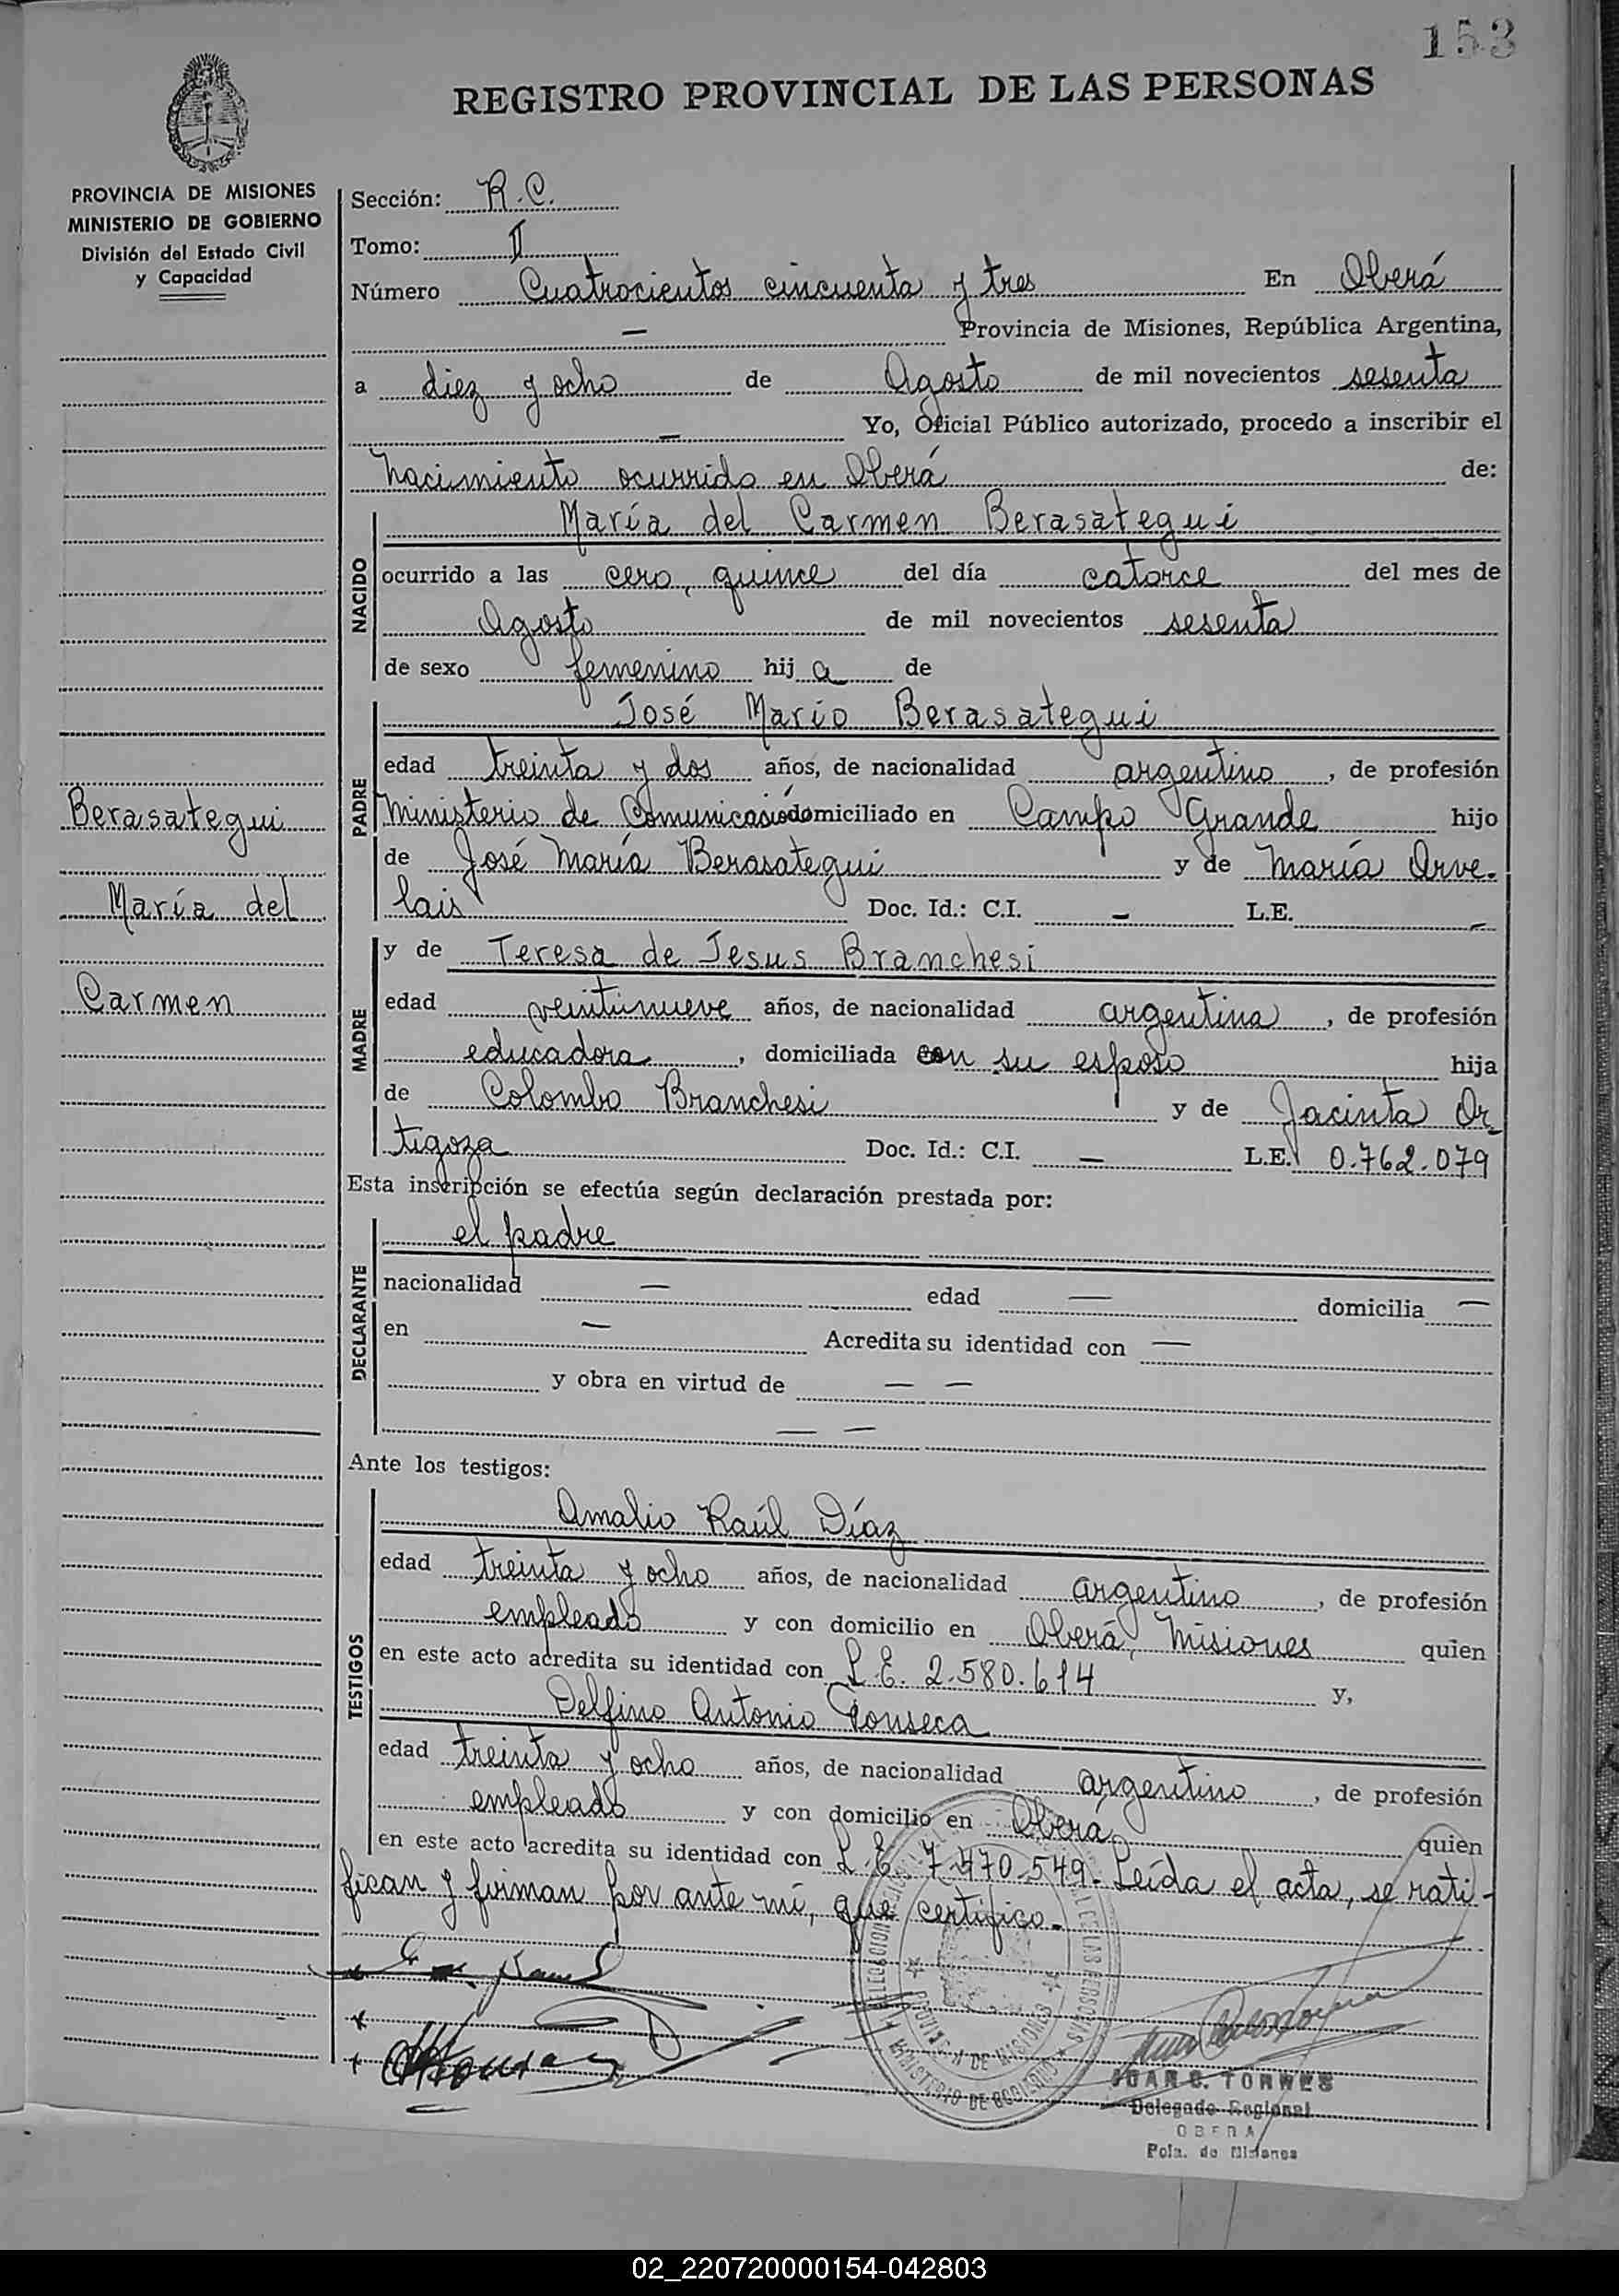 153
REGISTRO PROVINCIAL DE LAS PERSONAS
PROVINCIA DE MISIONES
MINISTERIO DE GOBIERNO
División del Estado Civil
y Capacidad
Sección: R.C.
Tomo: II
Número Cuatrocientos cincuenta y tres En Oberá
— Provincia de Misiones, República Argentina,
a diez y ocho de Agosto de mil novecientos sesenta
— Yo, Oficial Público autorizado, procedo a inscribir el
nacimiento ocurrido en Oberá de:
NACIDO
María del Carmen Berasategui
ocurrido a las cero, quince del día catorce del mes de
Agosto de mil novecientos sesenta
de sexo femenino hij a de
PADRE
José Mario Berasategui
edad treinta y dos años, de nacionalidad argentino, de profesión
Ministerio de Comunicasió domiciliado en Campo Grande hijo
de José María Berasategui y de María Arve-
lais Doc. Id.: C.I. — L.E. —
Berasategui
María del
Carmen
MADRE
y de Teresa de Jesus Branchesi
edad veintinueve años, de nacionalidad argentina, de profesión
educadora, domiciliada con su esposo hija
de Colombo Branchesi y de Jacinta Or-
tigoza Doc. Id.: C.I. — L.E. 0.762.079
Esta inscripción se efectúa según declaración prestada por:
DECLARANTE
el padre
nacionalidad — edad — domicilia —
en — Acredita su identidad con —
y obra en virtud de — —
— —
Ante los testigos:
TESTIGOS
Amalio Raúl Díaz
edad treinta y ocho años, de nacionalidad argentino, de profesión
empleado y con domicilio en Oberá, Misiones quien
en este acto acredita su identidad con L.E. 2.580.614 y,
Delfino Antonio Fonseca
edad treinta y ocho años, de nacionalidad argentino, de profesión
empleado y con domicilio en Oberá, quien
en este acto acredita su identidad con L.E. 7.470.549. Leída el acta, se rati-
fican y firman por ante mí, que certifico.-
PROVINCIA DE MISIONES
MINISTERIO DE GOBIERNO
JUAN C. TORRES
Delegado Regional
OBERA
Pcia. de Misiones
02_220720000154-042803